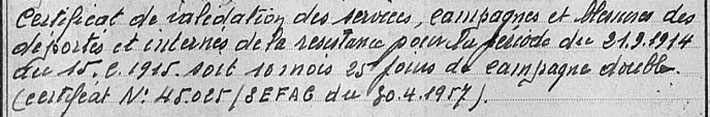 Certificat de validation des services, campagnes et blessures des
déportés et internés de la résistance pour la période du 21.9.1914
au 15. .1915. soit 10 mois 25 jours de campagne double.
(certificat N: 45.025/SEFAG du 30.4.1957).